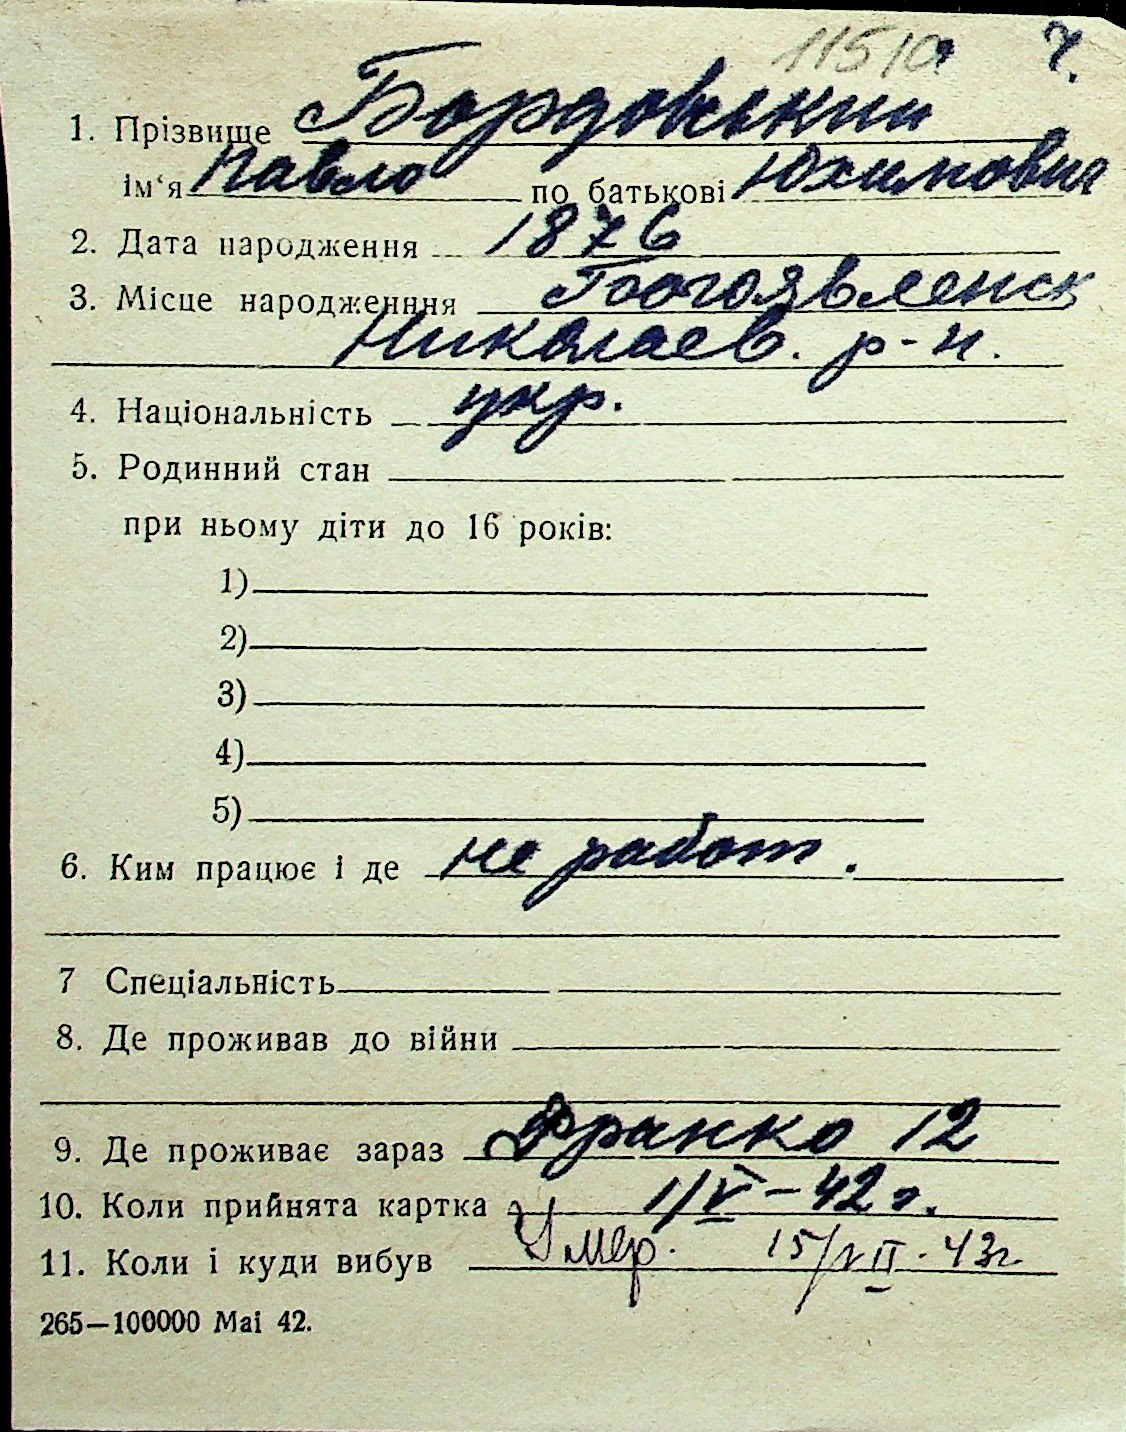 11510 ч.
1. Прізвище Бордовський
ім‘я Павло по батькові Юхимович
2. Дата народження 1876
3. Місце народженння Богоявленск
Николаев. р-н.
4. Національність укр.
5. Родинний стан
при ньому діти до 16 років:
1)
2)
3)
4)
5)
6. Ким працює і де не работ.
7 Спеціальність
8. Де проживав до війни
9. Де проживає зараз Франко 12
10. Коли прийнята картка 1/V-42г.
11. Коли і куди вибув Умер. 15/VII-43г
265—100000 Mai 42.